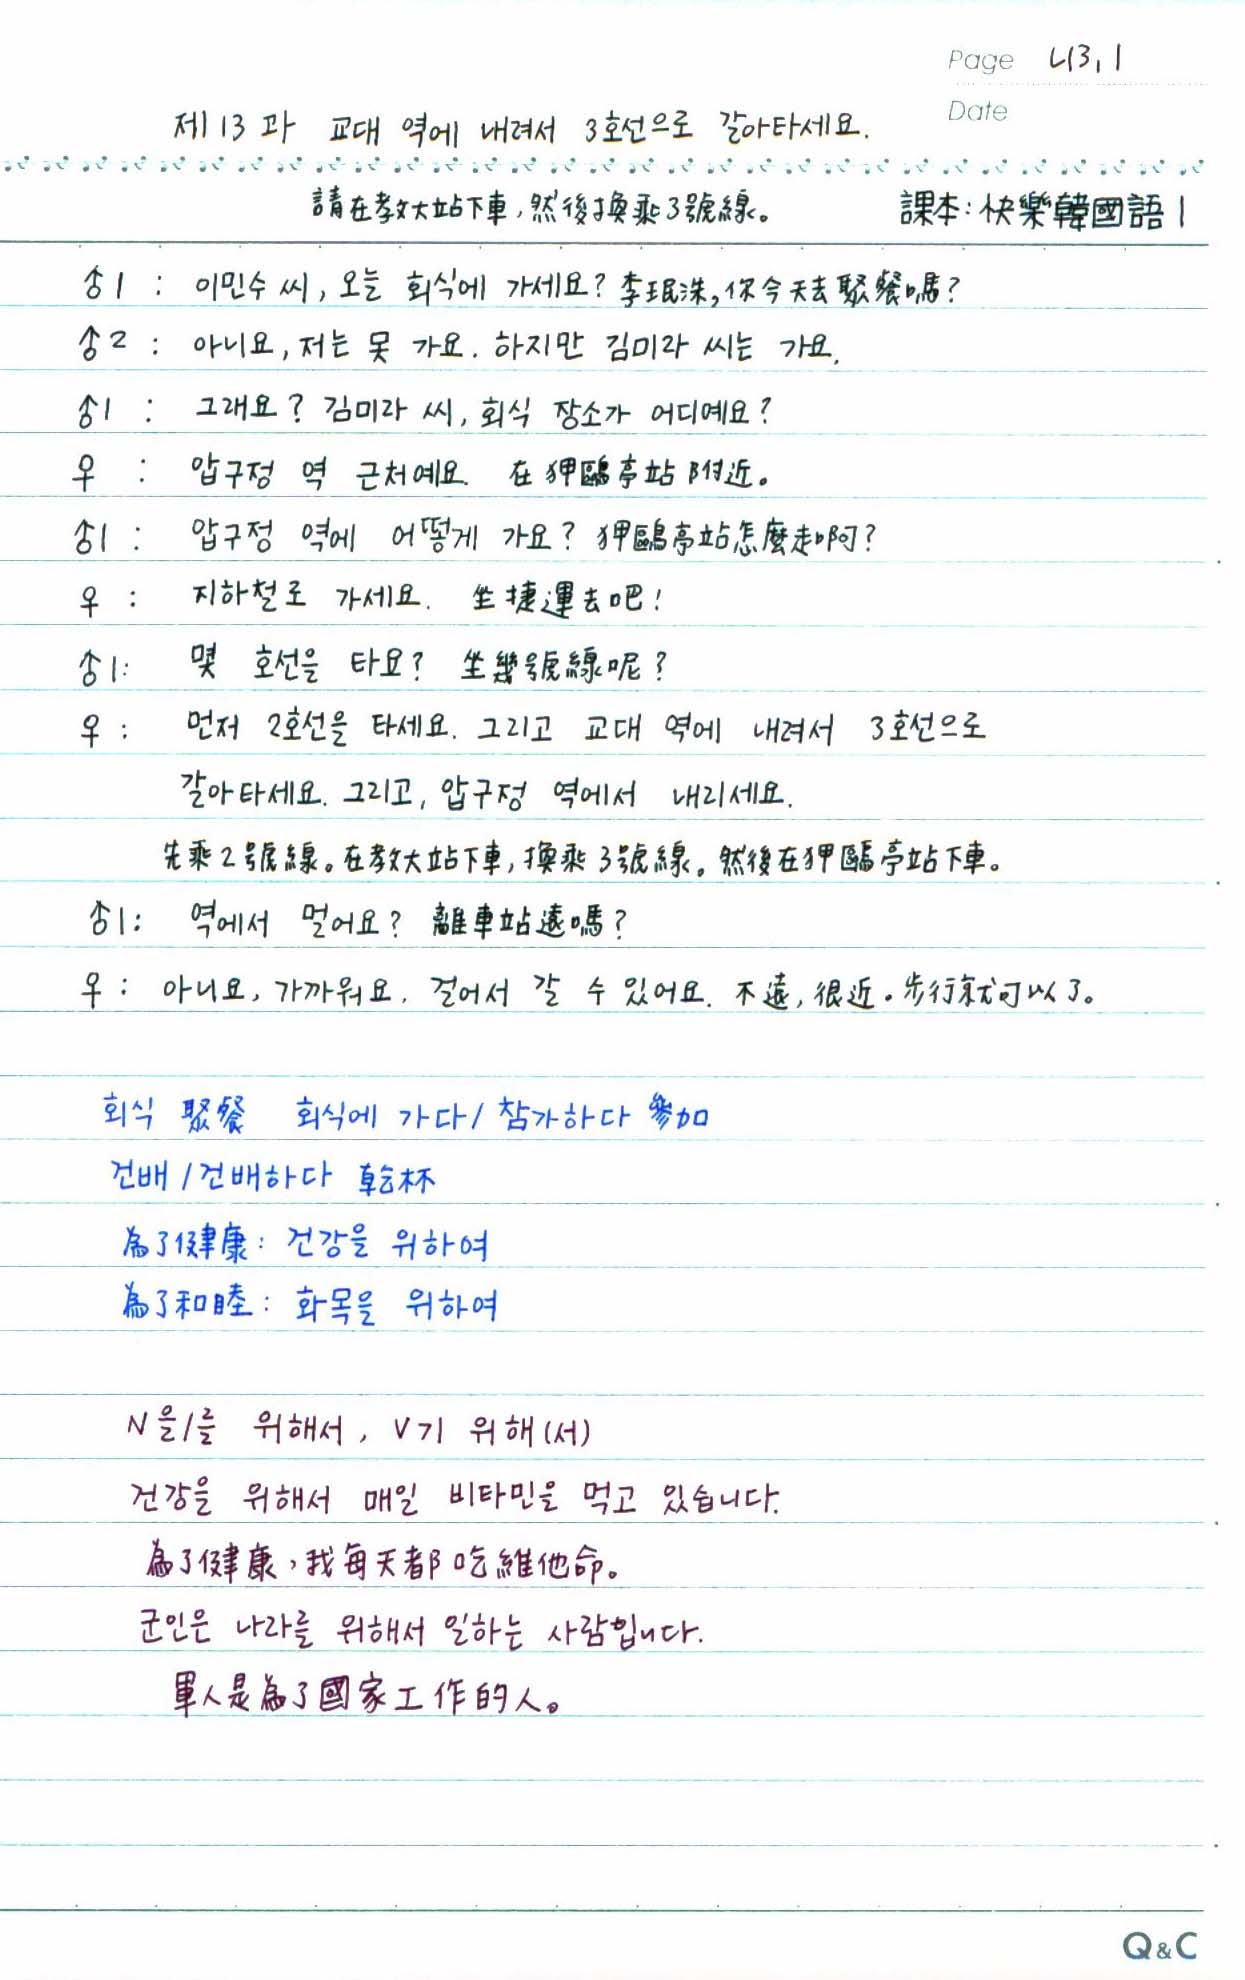 Page L13, 1
Date
제13과 교대 역에 내려서 3호선으로 갈아타세요.
請在教大站下車,然後換乘3號線。 課本:快樂韓國語1
♂1 : 이민수 씨, 오늘 회식에 가세요? 李珉洙,你今天去聚餐嗎?
♂2 : 아니요, 저는 못 가요. 하지만 김미라 씨는 가요.
♂1 : 그래요? 김미라 씨, 회식 장소가 어디예요?
우 : 압구정 역 근처예요. 在狎鷗亭站附近。
♂1 : 압구정 역에 어떻게 가요? 狎鷗亭站怎麼走啊?
우 : 지하철로 가세요. 坐捷運去吧!
♂1: 몇 호선을 타요? 坐幾號線呢?
우 : 먼저 2호선을 타세요. 그리고 교대 역에 내려서 3호선으로
갈아타세요. 그리고, 압구정 역에서 내리세요.
先乘2號線。在教大站下車,換乘3號線。然後在狎鷗亭站下車。
♂1: 역에서 멀어요? 離車站遠嗎?
우 : 아니요, 가까워요. 걸어서 갈 수 있어요. 不遠,很近。步行就可以了。
회식 聚餐 회식에 가다/참가하다 參加
건배/건배하다 乾杯
為了健康: 건강을 위하여
為了和睦: 화목을 위하여
N을/를 위해서, V기 위해(서)
건강을 위해서 매일 비타민을 먹고 있습니다.
為了健康,我每天都吃維他命。
군인은 나라를 위해서 일하는 사람입니다.
軍人是為了國家工作的人。
Q&C